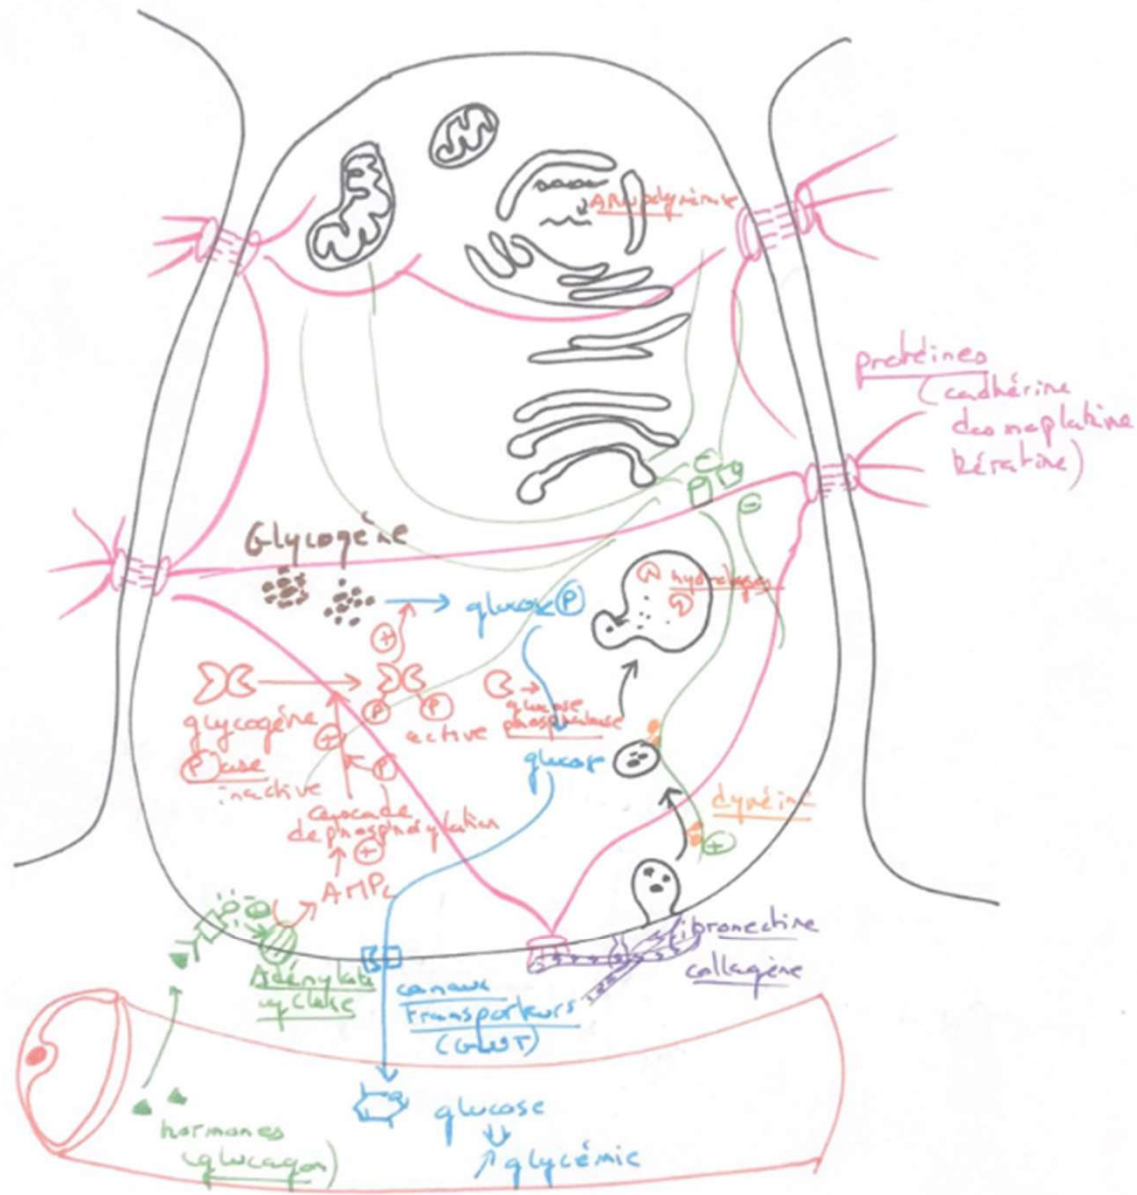 ARN polymérase
protéines
(cadhérine
desmoplakine
kératine)
Glycogène
glucose P
hydrolases
glycogène
P ase
inactive
active
glucose
phosphatase
glucose
cascade
de phosphorylation
AMPc
dynéine
fibronectine
collagène
Adénylate
cyclase
canaux
transporteurs
(GLUT)
hormones
(glucagon)
glucose
↗ glycémie